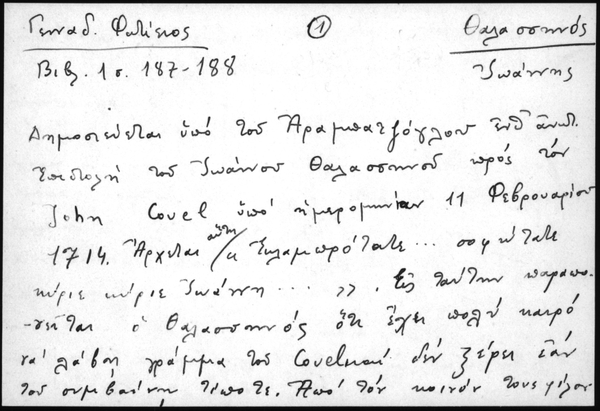 Γενναδ. Φωτίειος ① Θαλασσηνός
Βιβλ. 1 σ. 187-188 Ἰωάννης
Δημοσιεύεται ὑπό τοῦ Ἀραμπατζόγλου ἐνθ' ἀνωτ.
ἐπιστολή τοῦ Ἰωάννου Θαλασσηνοῦ πρός τόν
John Covel ὑπό ἡμερομηνίαν 11 Φεβρουαρίου
1714. Ἄρχεται αὕτη « Ἐκλαμπρότατε ... σοφώτατε
κύριε κύριε Ἰωάννη ... ». Εἰς ταύτην παραπο-
-νεῖται ὁ Θαλασσηνός ὅτι ἔχει πολύ καιρό
νά λάβῃ γράμμα τοῦ Covel καί δέν ξέρει ἐάν
τοῦ συμβαίνη τίποτε. Ἀπό τόν κοινόν τους φίλον